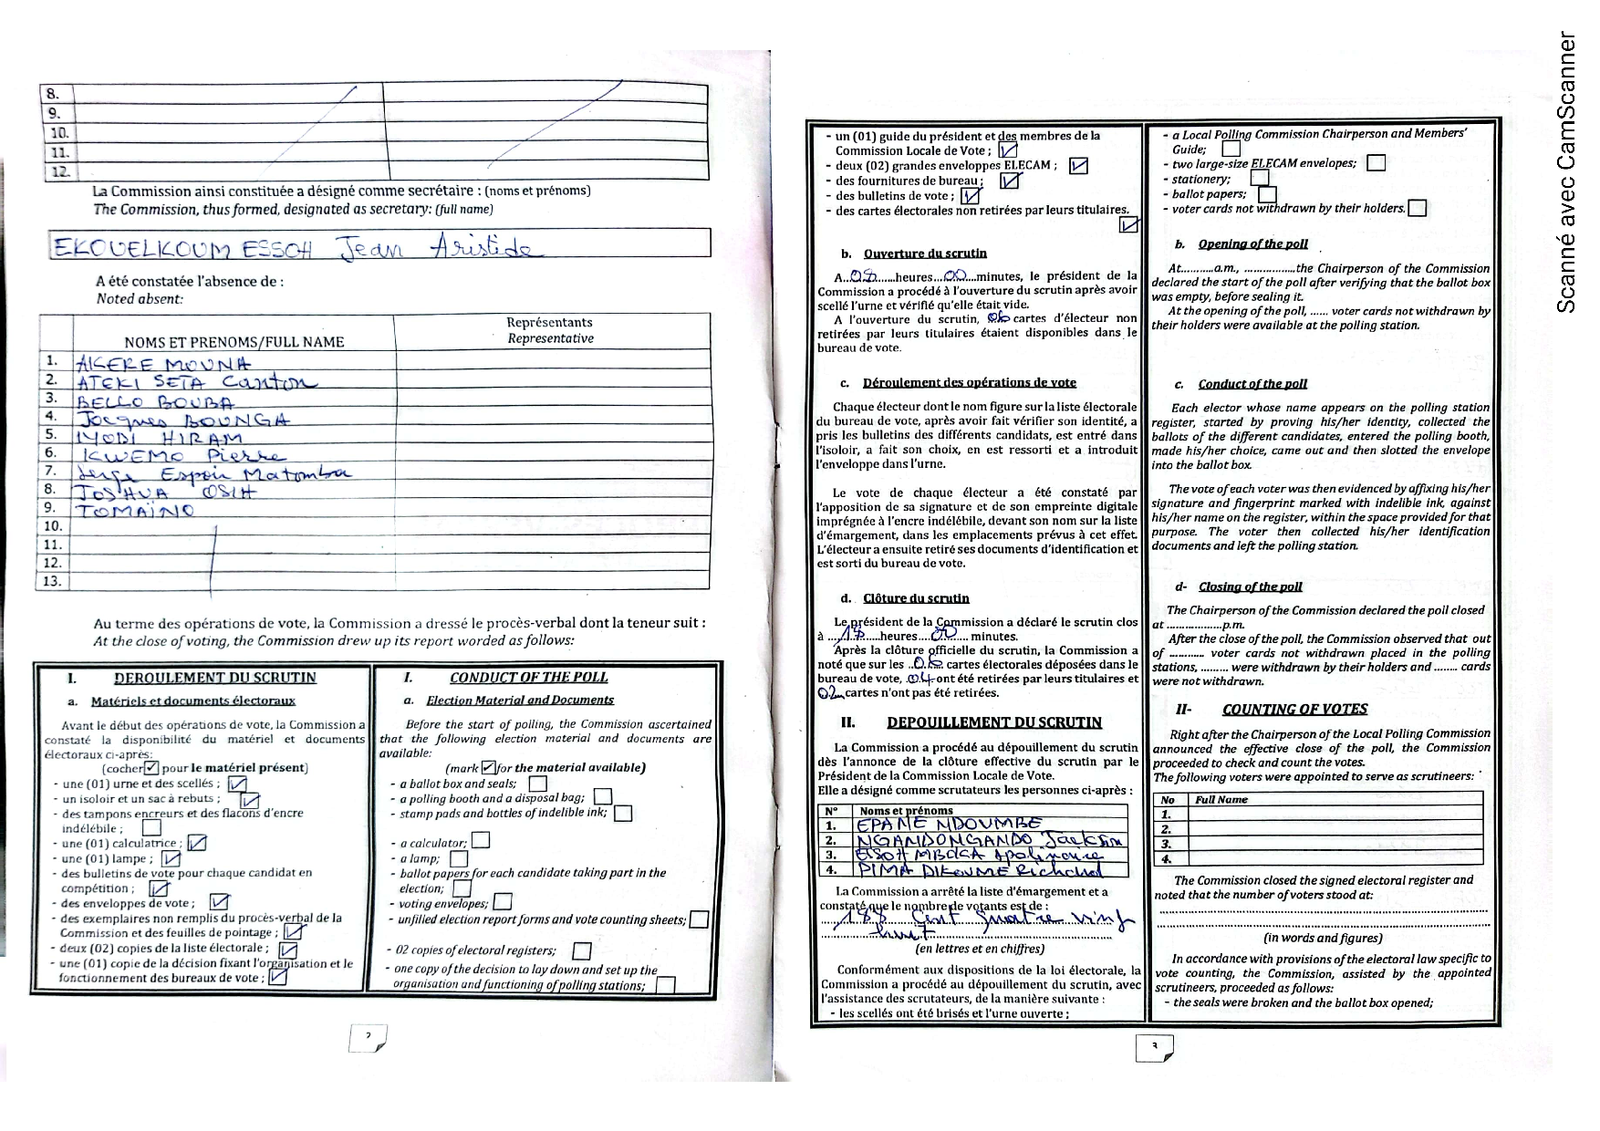 8.
9.
10.
11.
12.
La Commission ainsi constituée a désigné comme secrétaire : (noms et prénoms)
The Commission, thus formed, designated as secretary: (full name)
EKOUELKOUM ESSOH Jean Aristide
A été constatée l'absence de :
Noted absent:
NOMS ET PRENOMS/FULL NAME
Représentants
Representative
1. AKERE MOUNA
2. ATEKI SETA Canton
3. BELLO BOUBA
4. Jacques BOUNGA
5. IYODI HIRAM
6. KWEMO Pierre
7. Serge Espoir Matomba
8. JOSHUA OSIH
9. TOMAÏNO
10.
11.
12.
13.
Au terme des opérations de vote, la Commission a dressé le procès-verbal dont la teneur suit :
At the close of voting, the Commission drew up its report worded as follows:
I. DEROULEMENT DU SCRUTIN
a. Matériels et documents électoraux
Avant le début des opérations de vote, la Commission a
constaté la disponibilité du matériel et documents
électoraux ci-après:
(cocher ☑ pour le matériel présent)
- une (01) urne et des scellés ; ☑
- un isoloir et un sac à rebuts ; ☑
- des tampons encreurs et des flacons d'encre
indélébile ; ☐
- une (01) calculatrice ; ☑
- une (01) lampe ; ☑
- des bulletins de vote pour chaque candidat en
compétition ; ☑
- des enveloppes de vote ; ☑
- des exemplaires non remplis du procès-verbal de la
Commission et des feuilles de pointage ; ☑
- deux (02) copies de la liste électorale ; ☑
- une (01) copie de la décision fixant l'organisation et le
fonctionnement des bureaux de vote ; ☑
I. CONDUCT OF THE POLL
a. Election Material and Documents
Before the start of polling, the Commission ascertained
that the following election material and documents are
available:
(mark ☑ for the material available)
- a ballot box and seals; ☐
- a polling booth and a disposal bag; ☐
- stamp pads and bottles of indelible ink; ☐
- a calculator; ☐
- a lamp; ☐
- ballot papers for each candidate taking part in the
election; ☐
- voting envelopes; ☐
- unfilled election report forms and vote counting sheets; ☐
- 02 copies of electoral registers; ☐
- one copy of the decision to lay down and set up the
organisation and functioning of polling stations; ☐
2
- un (01) guide du président et des membres de la
Commission Locale de Vote ; ☑
- deux (02) grandes enveloppes ELECAM ; ☑
- des fournitures de bureau ; ☑
- des bulletins de vote ; ☑
- des cartes électorales non retirées par leurs titulaires.
☑
b. Ouverture du scrutin
A..08......heures...00....minutes, le président de la
Commission a procédé à l'ouverture du scrutin après avoir
scellé l'urne et vérifié qu'elle était vide.
A l'ouverture du scrutin, 06 cartes d'électeur non
retirées par leurs titulaires étaient disponibles dans le
bureau de vote.
c. Déroulement des opérations de vote
Chaque électeur dont le nom figure sur la liste électorale
du bureau de vote, après avoir fait vérifier son identité, a
pris les bulletins des différents candidats, est entré dans
l'isoloir, a fait son choix, en est ressorti et a introduit
l'enveloppe dans l'urne.
Le vote de chaque électeur a été constaté par
l'apposition de sa signature et de son empreinte digitale
imprégnée à l'encre indélébile, devant son nom sur la liste
d'émargement, dans les emplacements prévus à cet effet.
L'électeur a ensuite retiré ses documents d'identification et
est sorti du bureau de vote.
d. Clôture du scrutin
Le président de la Commission a déclaré le scrutin clos
à ...18.....heures....00.... minutes.
Après la clôture officielle du scrutin, la Commission a
noté que sur les ..06. cartes électorales déposées dans le
bureau de vote, .04. ont été retirées par leurs titulaires et
02 cartes n'ont pas été retirées.
II. DEPOUILLEMENT DU SCRUTIN
La Commission a procédé au dépouillement du scrutin
dès l'annonce de la clôture effective du scrutin par le
Président de la Commission Locale de Vote.
Elle a désigné comme scrutateurs les personnes ci-après :
N° Noms et prénoms
1. EPANE NDOUMBE
2. NGANDONGANDO Jackson
3. ESSOH MBOCA Apolinaire
4. PIMA DIKOUME Richard
La Commission a arrêté la liste d'émargement et a
constaté que le nombre de votants est de :
188 Cent quatre ving
huit
(en lettres et en chiffres)
Conformément aux dispositions de la loi électorale, la
Commission a procédé au dépouillement du scrutin, avec
l'assistance des scrutateurs, de la manière suivante :
- les scellés ont été brisés et l'urne ouverte ;
- a Local Polling Commission Chairperson and Members'
Guide; ☐
- two large-size ELECAM envelopes; ☐
- stationery; ☐
- ballot papers; ☐
- voter cards not withdrawn by their holders. ☐
b. Opening of the poll
At...........a.m., ..................the Chairperson of the Commission
declared the start of the poll after verifying that the ballot box
was empty, before sealing it.
At the opening of the poll, ...... voter cards not withdrawn by
their holders were available at the polling station.
c. Conduct of the poll
Each elector whose name appears on the polling station
register, started by proving his/her identity, collected the
ballots of the different candidates, entered the polling booth,
made his/her choice, came out and then slotted the envelope
into the ballot box.
The vote of each voter was then evidenced by affixing his/her
signature and fingerprint marked with indelible ink, against
his/her name on the register, within the space provided for that
purpose. The voter then collected his/her identification
documents and left the polling station.
d- Closing of the poll
The Chairperson of the Commission declared the poll closed
at ..................p.m.
After the close of the poll, the Commission observed that out
of ........... voter cards not withdrawn placed in the polling
stations, ......... were withdrawn by their holders and ........ cards
were not withdrawn.
II- COUNTING OF VOTES
Right after the Chairperson of the Local Polling Commission
announced the effective close of the poll, the Commission
proceeded to check and count the votes.
The following voters were appointed to serve as scrutineers:
No Full Name
1.
2.
3.
4.
The Commission closed the signed electoral register and
noted that the number of voters stood at:
(in words and figures)
In accordance with provisions of the electoral law specific to
vote counting, the Commission, assisted by the appointed
scrutineers, proceeded as follows:
- the seals were broken and the ballot box opened;
3
Scanné avec CamScanner